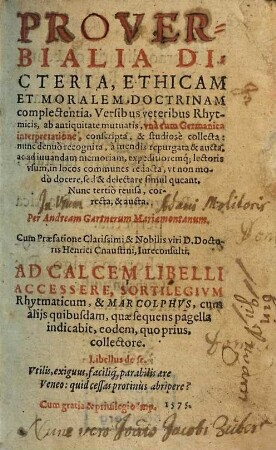 PROVER-
BIALIA DI-
CTERIA, ETHICAM
ET MORALEM DOCTRINAM
complectentia. Versibus veteribus Rhyt-
micis, ab antiquitate mutuatis, vnà cum Germanica
interpretatione, conscripta, & studiosè collecta:
nunc denuò recognita, à mendis repurgata & aucta,
ac ad iuuandam memoriam, expeditioremq; lectoris
vsum, in locos communes redacta, vt non mo-
dò docere, sed & delectare simul queant.
Nunc tertiò reuisa, cor-
recta, & aucta.
Molitoris
Per Andream Gartnerum Mariæmontanum.
Cum Præfatione Clarissimi & Nobilis viri D. Docto-
ris Henrici Cnaustini, Iureconsulti.
AD CALCEM LIBELLI
ACCESSERE, SORTILEGIVM
Rhytmaticum, & MARCOLPHVS, cum
alijs quibusdam, quæ sequens pagella
indicabit, eodem, quo prius,
collectore.
Libellus de se.
Vtilis, exiguus, faciliq; parabilis ære
Veneo: quid cessas protinus abripere?
Cum gratia & priuilegio Imp. 1575.
Nunc vero Jacobi